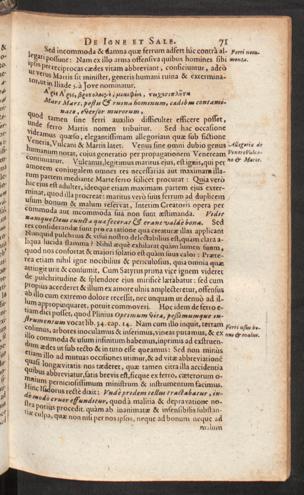 DE IGNE ET SALE. 71
Sed incommoda & damna quæ ferrum adfert hic contrà al-
legari possunt: Nam ex illo arma offensiva quibus homines sibi
ipsis per reciprocas cædes vitam abbreviant, conficiuntur, adeò
ut verus Martis sit minister, generis humani ruina & extermina-
tor, ut in Iliade 5. à Jove nominatur,
Mars Mars, pestis & ruina hominum, cædibus contami-
nate, eversor murorum,
quod tamen sine ferri auxilio difficulter efficere posset,
unde ferro Martis nomen tribuitur. Sed hac occasione
videamus quæso, elegantissimam allegoriam quæ sub fictione
Veneris, Vulcani & Martis latet. Venus sine omni dubio genus
humanum notat, cujus generatio per propaginationem Venream
continuatur. Vulcanus, legitimus maritus ejus, est ignis, qui per
amorem conjugalem omnes res necessarias aut maximam illa-
rum partem mediante Marte ferro scilicet procurat: Quia verò
hic ejus est adulter, ideoque etiam maximam partem ejus exter-
minat, quod illa procreat: maritus verò suus ferrum ad duplicem
usum bonum & malum reservat. Interim Creatoris opera per
commoda aut incommoda sua non sunt æstimanda. Vidit
namque Deus cuncta quæ fecerat & erant valdè bona. Sed
res considerandæ sunt pro ea ratione qua creaturæ illas applicant
Nunquid pulchrius & visui nostro delectabilius est, quàm clara a-
liqua lucida flamma? Nihil æquè exhilarat quàm lumen suum,
quod nos confortat & majori solatio est quàm suus calor: Præte-
rea etiam nihil igne nocibilius & periculosius, quia omnia quæ
attingit urit & consumit. Cum Satyrus prima vice ignem videret
de pulchritudine & splendore ejus mirificè lætabatur: sed cum
propius accederet & illum ex amore ulnis amplecteretur, offensus
ab illo cum extremo dolore recessit, nec unquam ut denuò ad il-
lum appropinquaret, potuit commoveri. Hoc idem de ferro e-
tiam dici posset, quod Plinius Optimum vita, pessimumque in-
strumentum vocat lib. 34. cap. 14. Nam cum illo inquit, terram
colimus, arbores inoculamus & inserimus, vineas putamus, & ex
illo commoda & usum infinitum habemus, in primis ad exstruen-
dum ædes ut sub tecto & in tuto esse queamus: Sed non minùs
etiam illo ad mutuas occisiones utimur, & ad vitæ abbreviationē
quasi longæ vitalis nos tæderet, quæ tamen citra illa accidentia
quibus abbreviatur, satis brevis est, sicque ex ferro, cæterorum o-
malum perniciosissimum ministrum & instrumentum facimus.
Hinc Isidorus rectè dixit: Unde prodem tellus tractabatur, in-
de modo cruor effunditur, quod à malitia & depravatione no-
stra potius procedit, quàm ab inanimatæ & insensibilis substan-
tiæ culpa, quæ non nisi per nos ipsos, neque ad bonum neque ad
malum
Ferri nocu-
menta.
Allegoria de
Venere Vulca-
no & Marte.
Ferri usus bo-
nus & malus.